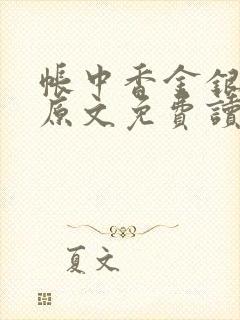 帳中香金銀
原文免費讀
夏文